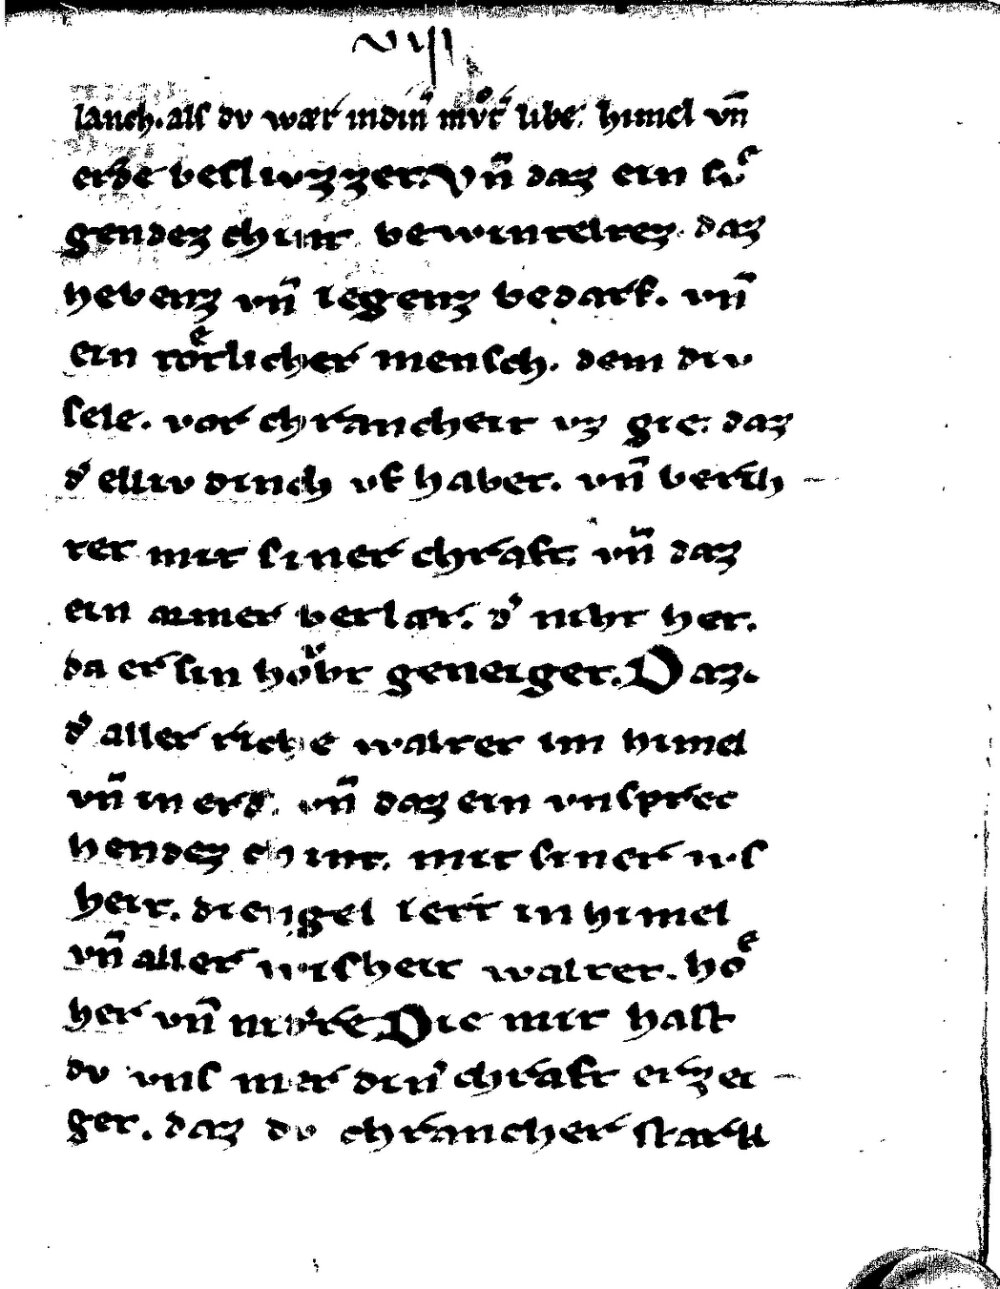 viij
lanch. als dv wær indinͬ mvͦtͬ libe. himel vn̄
erde beslivzzet. Vn̄ daz ein sv̊
gendez chint bewinteltez. daz
hebenz vn̄ legenz bedarf. vn̄
ein toͤtlicher mensch. dem div
sele. vor chrancheit vz gie. daz
dͬ elliv dinch vf habet. vn̄ beriht
tet mit siner chraft. vn̄ daz
ein armer betlær. dͬ niht het.
da er sin hoͮbt geneiget. Daz.
dͬ aller riche waltet im himel
vn̄ in erd. vn̄ daz ein vnspree
hendez chint. mit siner wis
heit. die engel lert in himel
vn̄ aller wisheit waltet. hoͤ
her vn̄ niderͤ Die mit hast
dv vns mer dinͬ chraft erzei
get. daz dv chrancher starch